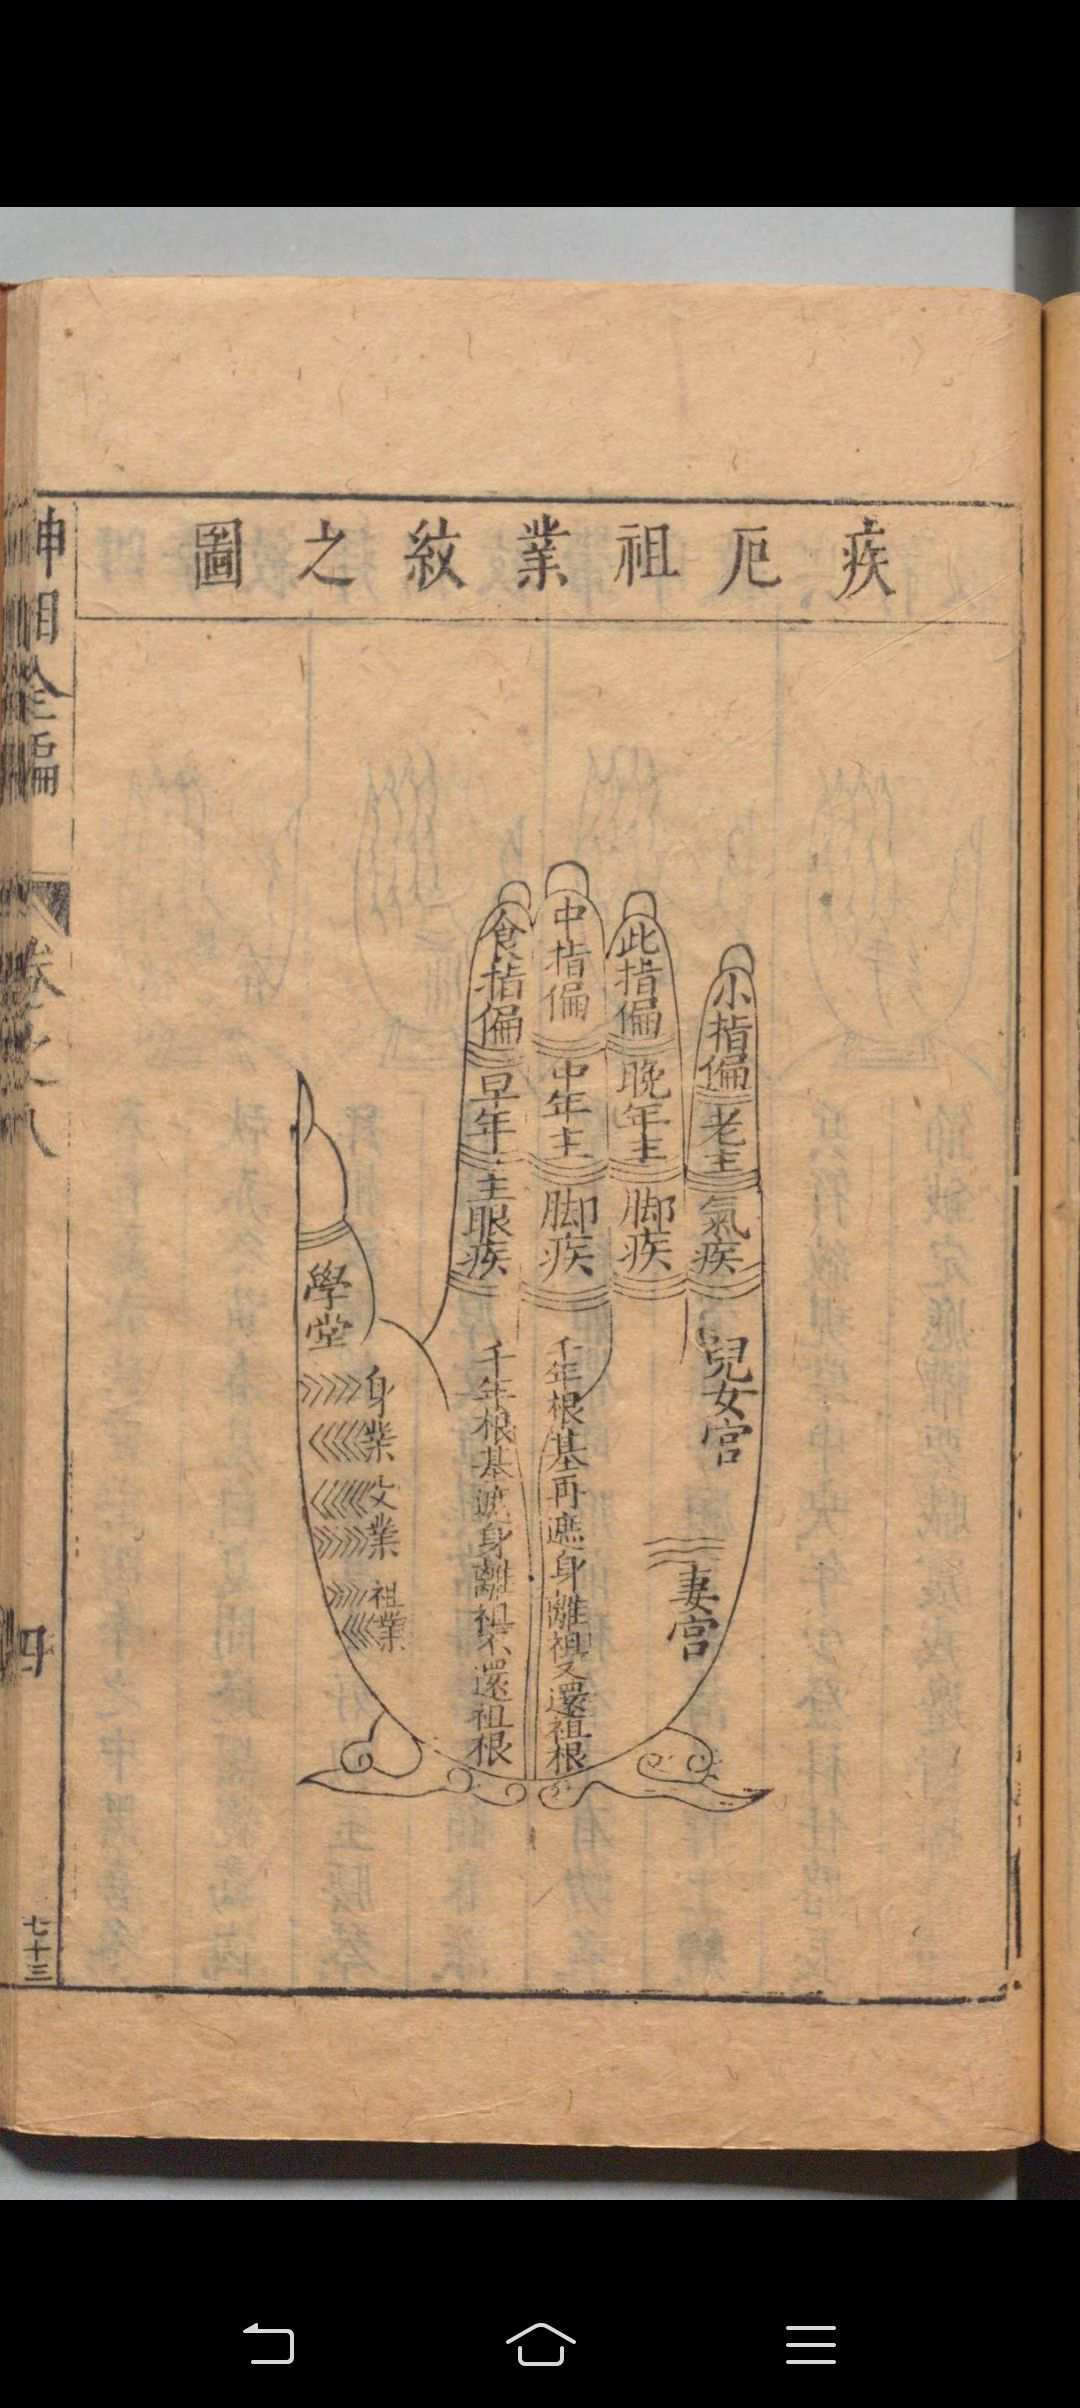 疾厄祖業紋之圖
小指偏老主氣疾
此指偏晚年主脚疾
中指偏中年主脚疾
食指偏早年主眼疾
兒女宫
妻宫
千年根基再遮身離祖又還祖根
千年根基遮身離祖不還祖根
學堂
身業
父業
祖業
神相全編
卷之八
四
七十三